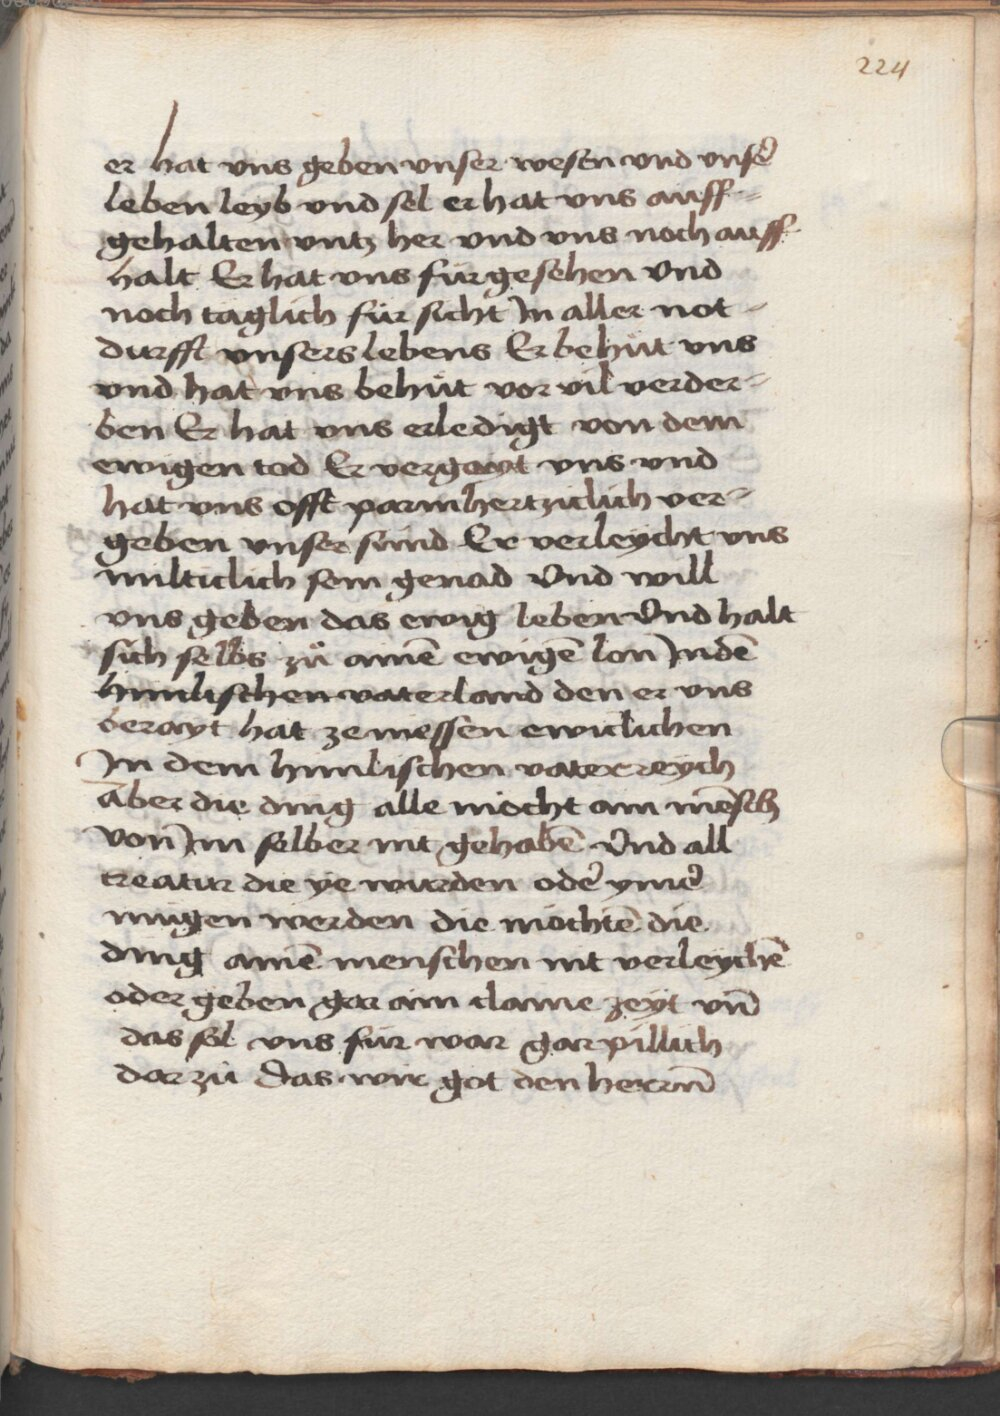 224
er hat vns geben vnser wesen vnd vnsẻ
leben leyb vnd sel er hat vns auff=
gehalten vntz her vnd vns noch auff
halt Er hat vns für gesehen Vnd
noch täglich für sicht In aller not=
durfft vnsers lebens Er behüt vns
vnd hat vns behüt vor vil verder=
ben Er hat vns erledigt von dem
ewigen tod Er vergayt vns vnd
hat vns offt parmhertziclich ver=
geben vnser sünd Er verleycht vns
milticlich sein genad Vnd will
vns geben das ewig leben Vnd halt
sich selbs zů ainē ewigē lon In dē
himlischen vaterland den er vns
berayt hat ze niessen ewiclichen
In dem himlischen vaterreych
Aber die ding alle möcht ain mēsch
Von Im selber nit gehabē Vnd all
creatur die ye wurden odẻ ymẻ
mügen werden die möchtē die
ding ainē menschen nit verleychē
oder geben gar ain claine zeyt vn̄
das sol vns für war gar pillich
dar zü das wir got den herrn̄